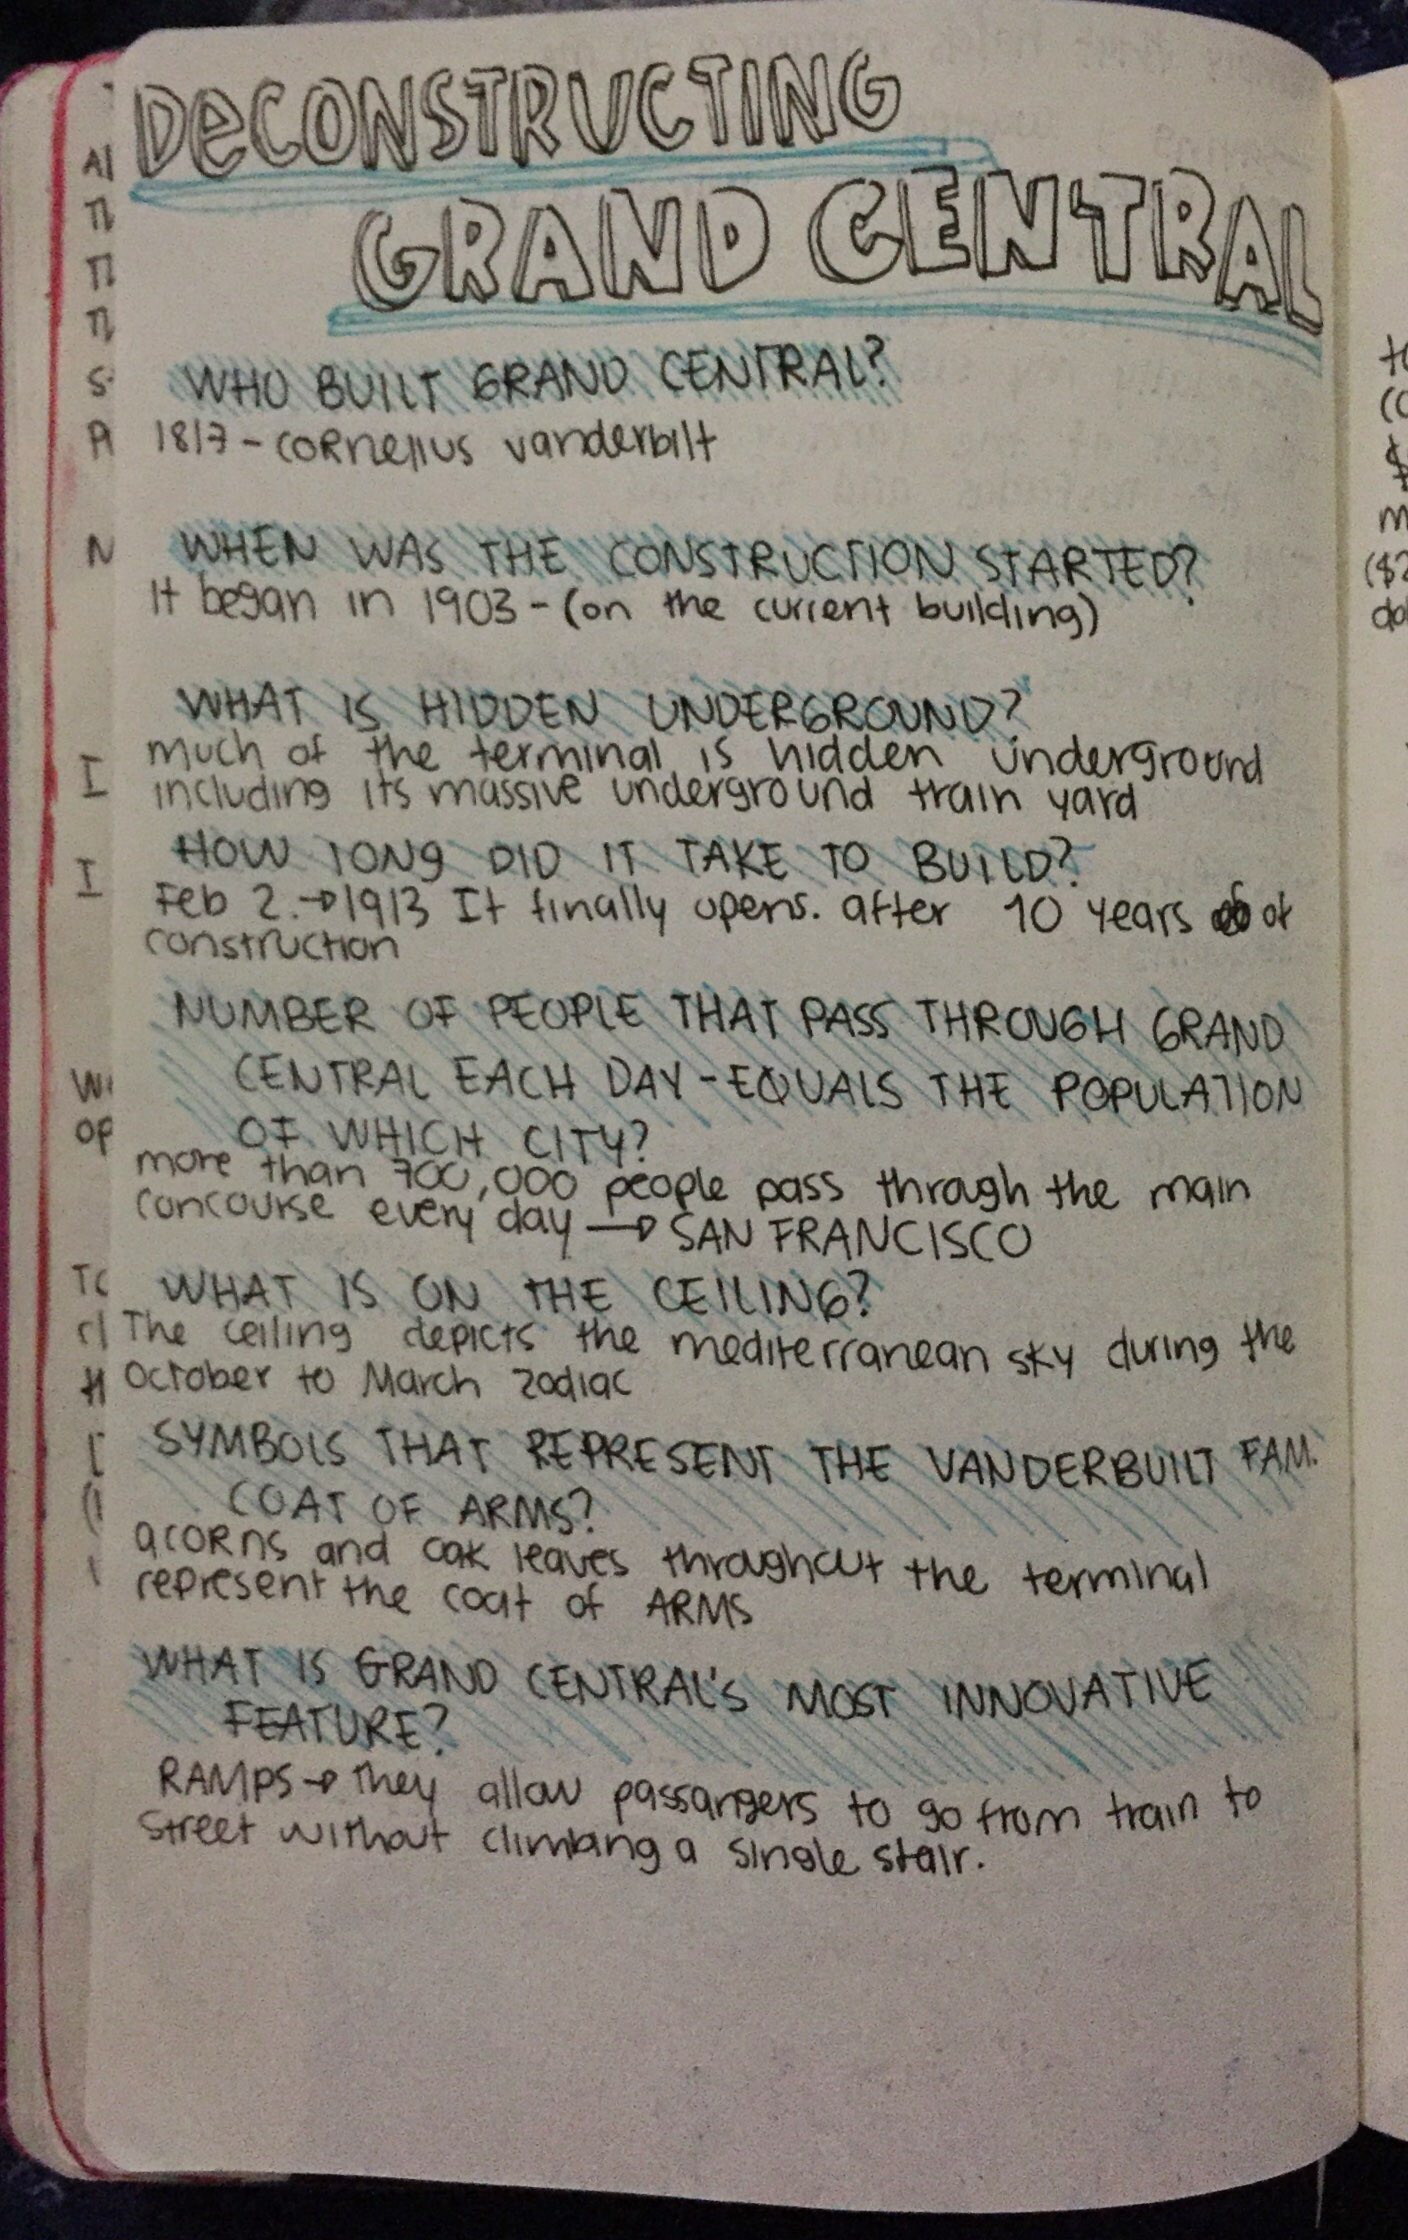 DECONSTRUCTING
GRAND CENTRAL
WHO BUILT GRAND CENTRAL?
1817 - CORNELIUS vanderbilt
WHEN WAS THE CONSTRUCTION STARTED?
It began in 1903 - (on the current building)
WHAT IS HIDDEN UNDERGROUND?
much of the terminal is hidden underground
including its massive underground train yard
HOW LONG DID IT TAKE TO BUILD?
Feb 2. → 1913 It finally opens. after 10 years of
construction
NUMBER OF PEOPLE THAT PASS THROUGH GRAND
CENTRAL EACH DAY - EQUALS THE POPULATION
OF WHICH CITY?
more than 700,000 people pass through the main
concourse every day → SAN FRANCISCO
WHAT IS ON THE CEILING?
The ceiling depicts the mediterranean sky during the
October to March zodiac
SYMBOLS THAT REPRESENT THE VANDERBUILT FAM.
COAT OF ARMS?
acorns and oak leaves throughout the terminal
represent the coat of ARMS
WHAT IS GRAND CENTRAL'S MOST INNOVATIVE
FEATURE?
RAMPS → They allow passangers to go from train to
street without climbing a single stair.